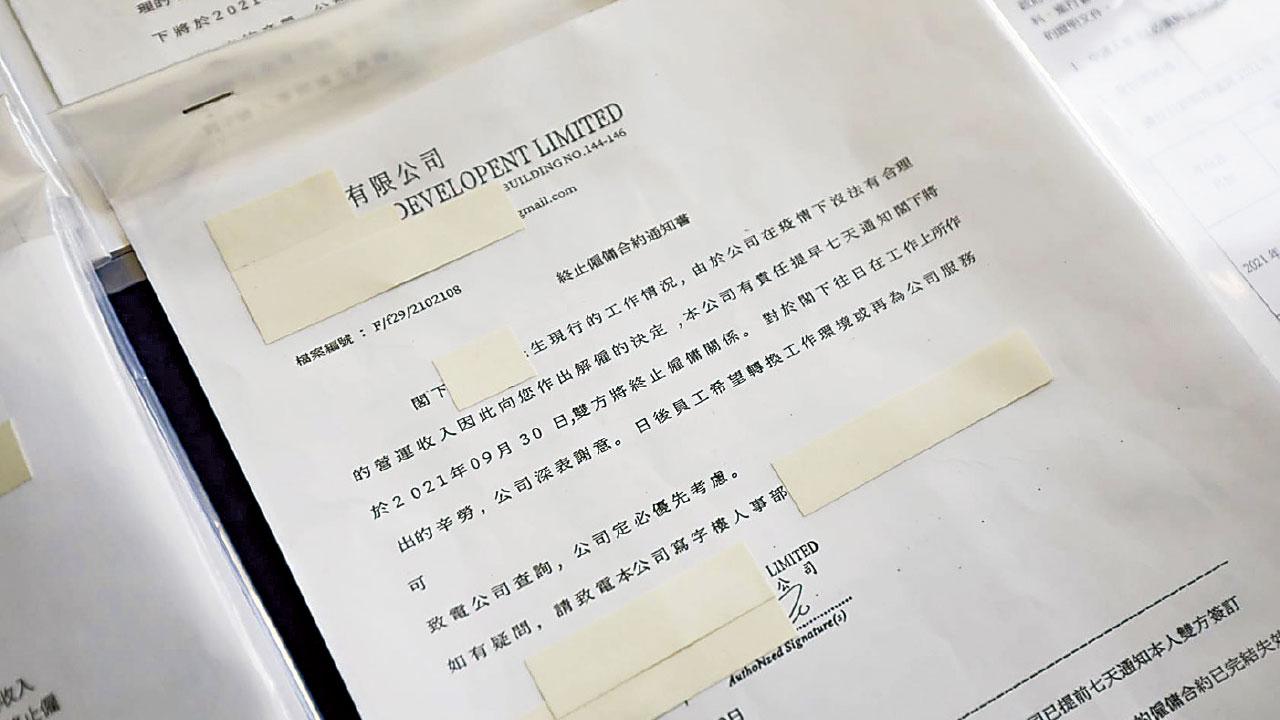 下將於2021
有限公司
DEVELOPENT LIMITED
BUILDING NO.144-146
gmail.com
終止僱傭合約通知書
檔案編號：F/f29/2102108
閣下
生現行的工作情況，由於公司在疫情下沒法有合理
的營運收入因此向您作出解僱的決定，本公司有責任提早七天通知閣下將
於2021年09月30 日,雙方將終止僱傭關係。對於閣下往日在工作上所作
出的辛勞，公司深表謝意。日後員工希望轉換工作環境或再為公司服務
可
致電公司查詢，公司定必優先考慮。
如有疑問，請致電本公司寫字樓人事部
LIMITED
公司
Authorized Signature(s)
司已提前七天通知本人雙方簽訂
的僱傭合約已完結失效
2021年
收入
止僱